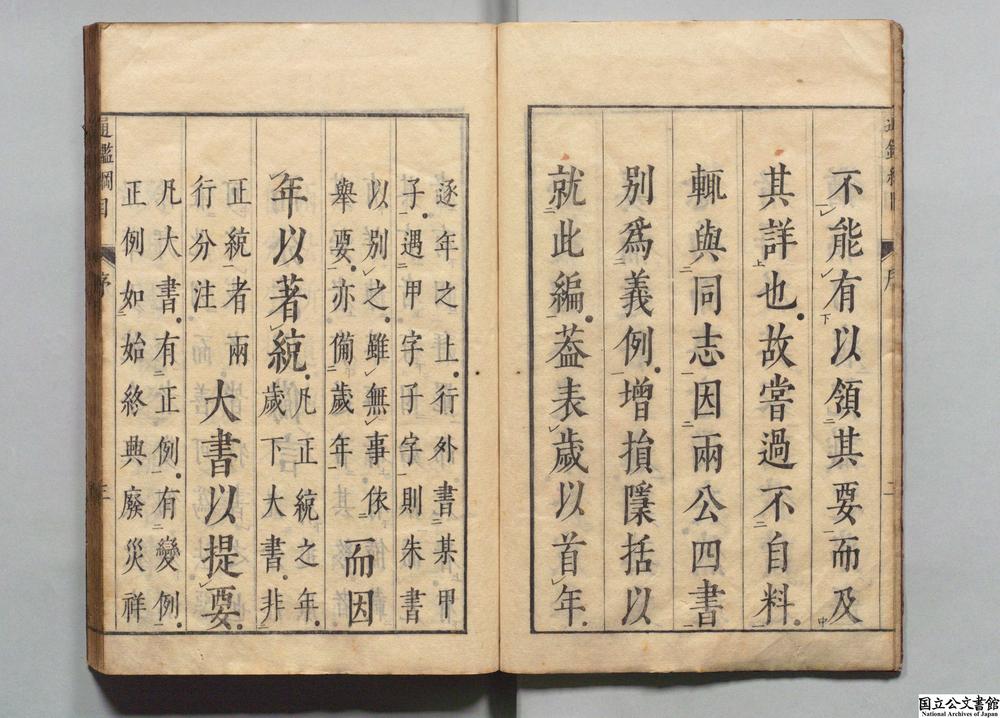 不能有以領其要而及
其詳也故嘗過不自料
輒與同志因兩公四書
別爲義例增損檃括以
就此編葢表歲以首年
逐年之上行外書某甲
子遇甲字子字則朱書
以別之雖無事依
舉要亦備歲年
而因
年以著統
凡正統之年
歲下大書非
正統者兩
行分注
大書以提要
凡大書有正例有變例
正例如始終興廢災祥
通鑑綱目 序 三
国立公文書館
National Archives of Japan